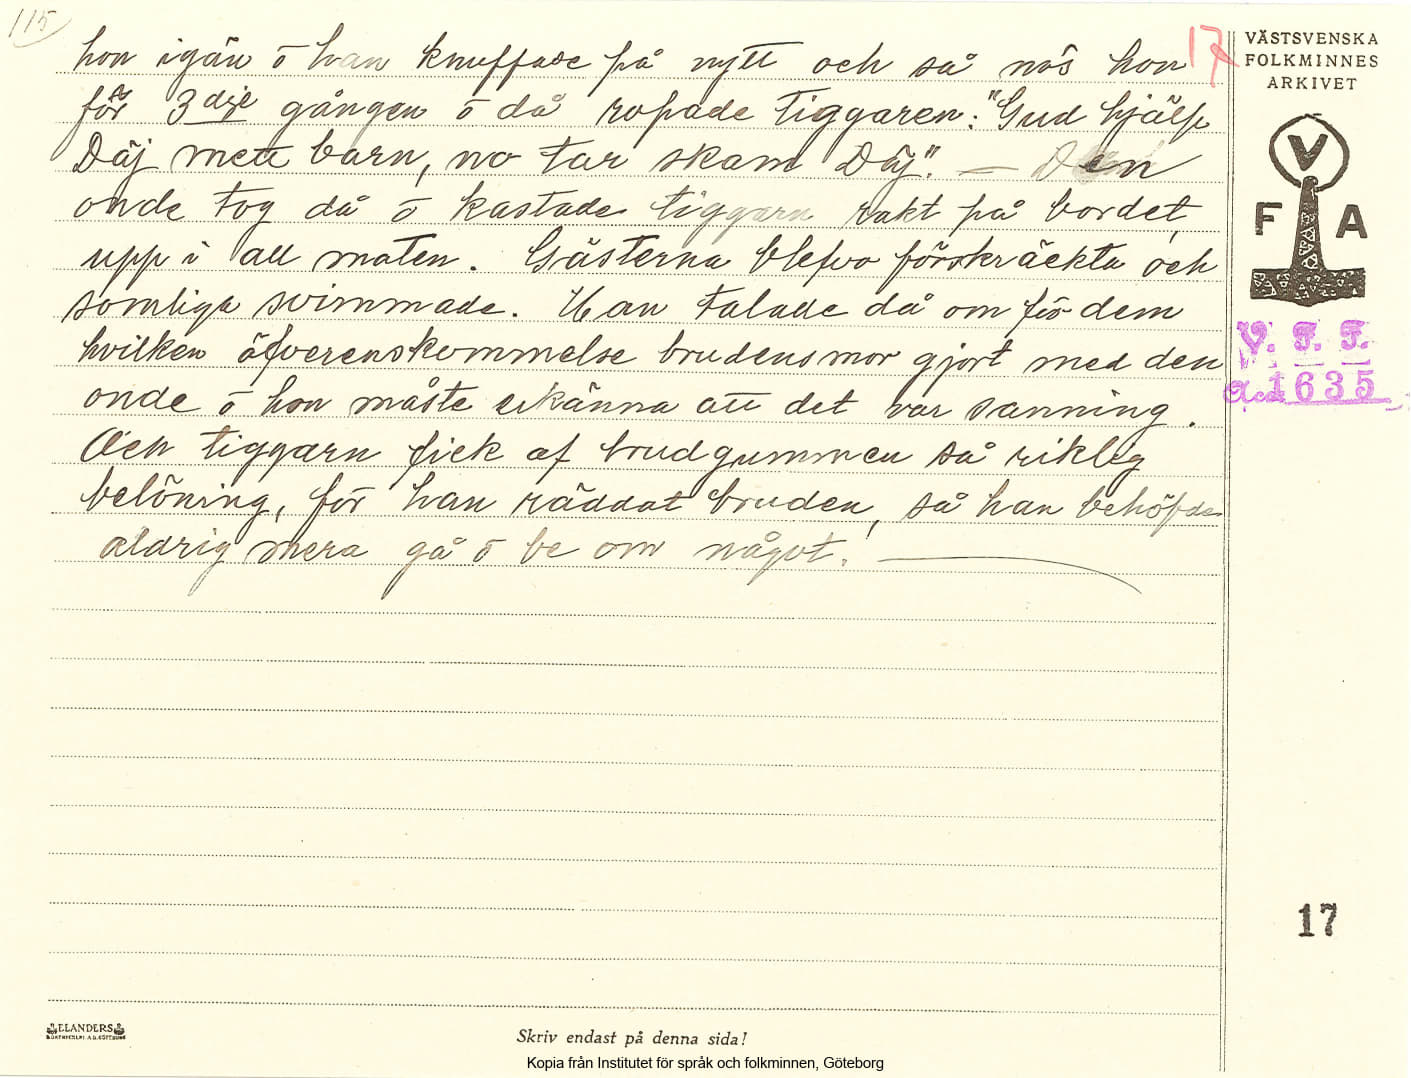 115
hon igän ō han knuffade på nytt och så nös hon
för 3dje gången ō då ropade Tiggaren: "Gud hjälp
Däj mett barn, no tar skam Däj". — Den
onde tog då ō kastade tiggarn rakt på bordet,
upp i all maten. Gästerna blefvo förskräckta och
somliga svimmade. Han talade då om för dem
hvilken öfverenskommelse brudens mor gjort med den
onde ō hon måste erkänna att det var sanning.
Och tiggarn fick af brudgummen så riklig
belöning, för han räddat bruden, så han behöfde
aldrig mera gå ō be om något!
17
VÄSTSVENSKA
FOLKMINNES
ARKIVET
V
F A
V. F. F.
Acc. 1635
17
ELANDERS
Skriv endast på denna sida!
Kopia från Institutet för språk och folkminnen, Göteborg